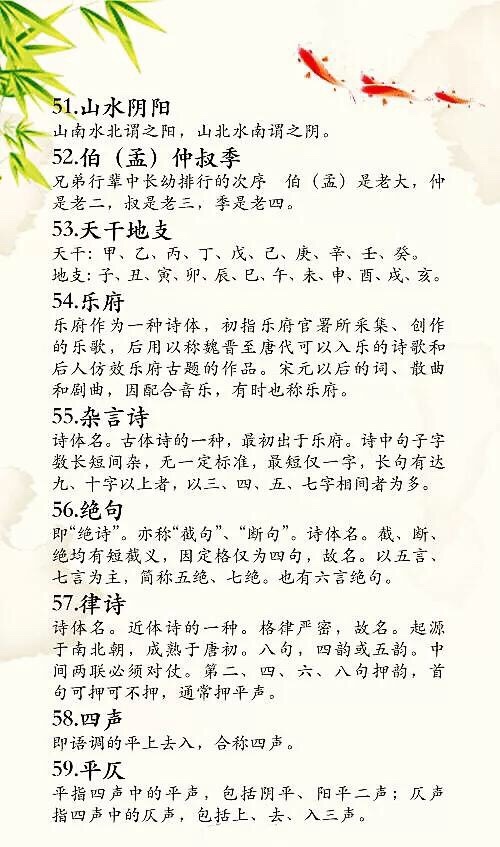 51.山水阴阳
山南水北谓之阳，山北水南谓之阴。
52.伯（孟）仲叔季
兄弟行辈中长幼排行的次序　伯（孟）是老大，仲
是老二，叔是老三，季是老四。
53.天干地支
天干：甲、乙、丙、丁、戊、己、庚、辛、壬、癸。
地支：子、丑、寅、卯、辰、巳、午、未、申、酉、戌、亥。
54.乐府
乐府作为一种诗体，初指乐府官署所采集、创作
的乐歌，后用以称魏晋至唐代可以入乐的诗歌和
后人仿效乐府古题的作品。宋元以后的词、散曲
和剧曲，因配合音乐，有时也称乐府。
55.杂言诗
诗体名。古体诗的一种，最初出于乐府。诗中句子字
数长短间杂，无一定标准，最短仅一字，长句有达
九、十字以上者，以三、四、五、七字相间者为多。
56.绝句
即“绝诗”。亦称“截句”、“断句”。诗体名。截、断、
绝均有短截义，因定格仅为四句，故名。以五言、
七言为主，简称五绝、七绝。也有六言绝句。
57.律诗
诗体名。近体诗的一种。格律严密，故名。起源
于南北朝，成熟于唐初。八句，四韵或五韵。中
间两联必须对仗。第二、四、六、八句押韵，首
句可押可不押，通常押平声。
58.四声
即语调的平上去入，合称四声。
59.平仄
平指四声中的平声，包括阴平、阳平二声；仄声
指四声中的仄声，包括上、去、入三声。